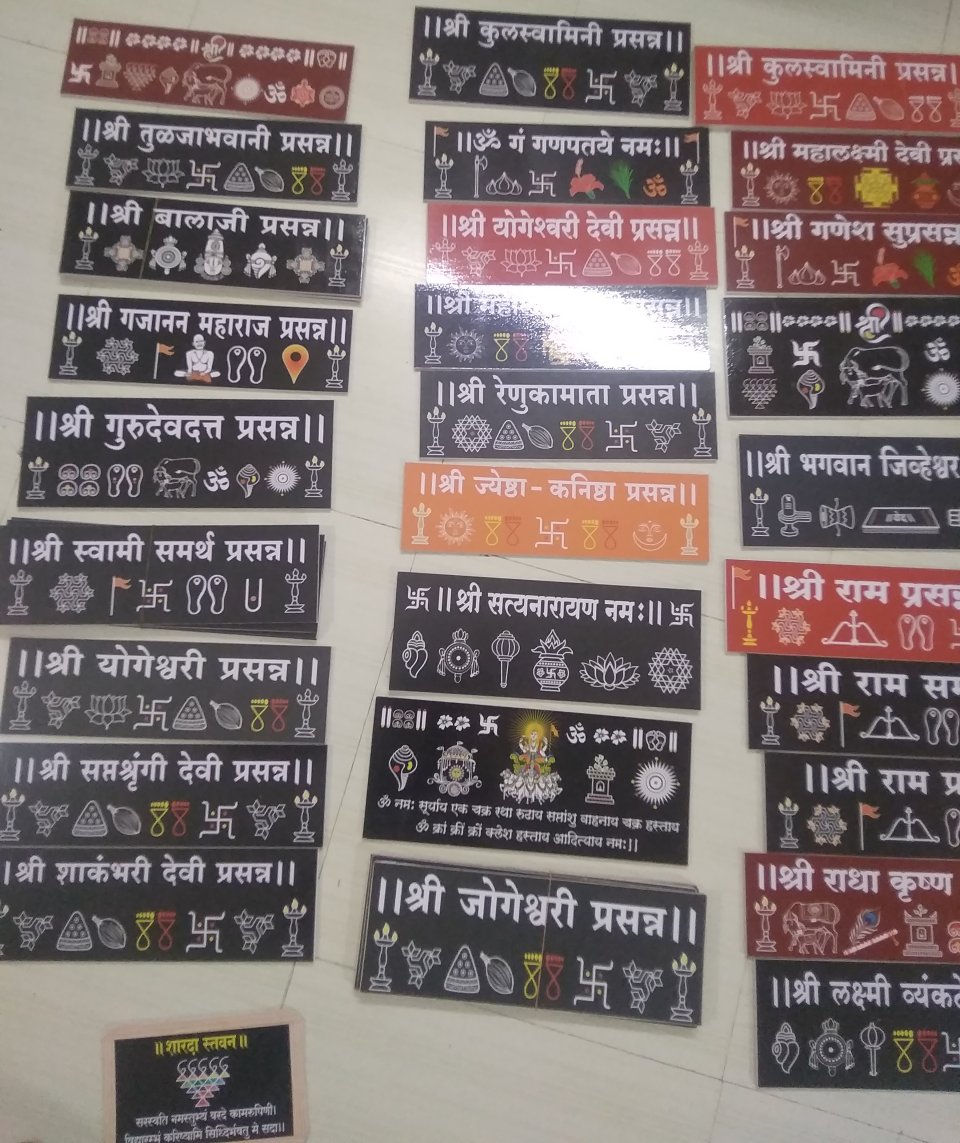 ||श्री||
||श्री तुळजाभवानी प्रसन्न||
||श्री बालाजी प्रसन्न||
||श्री गजानन महाराज प्रसन्न||
||श्री गुरुदेवदत्त प्रसन्न||
||श्री स्वामी समर्थ प्रसन्न||
||श्री योगेश्वरी प्रसन्न||
||श्री सप्तश्रृंगी देवी प्रसन्न||
||श्री शाकंभरी देवी प्रसन्न||
||शारदा स्तवन||
सरस्वति नमस्तुभ्यं वरदे कामरुपिणी।
विद्यारम्भं करिष्यामि सिध्दिर्भवतु मे सदा।।
||श्री कुलस्वामिनी प्रसन्न||
||ॐ गं गणपतये नमः||
||श्री योगेश्वरी देवी प्रसन्न||
||श्री
||श्री रेणुकामाता प्रसन्न||
||श्री ज्येष्ठा - कनिष्ठा प्रसन्न||
||श्री सत्यनारायण नमः||
ॐ नमः सूर्याय एक चक्र रथा रुढाय सप्तांशु वाहनाय चक्र हस्ताय
ॐ क्रां क्रीं क्रों क्लेश हस्ताय आदित्याय नमः।।
||श्री जोगेश्वरी प्रसन्न||
||श्री कुलस्वामिनी प्रसन्न||
||श्री महालक्ष्मी देवी
||श्री गणेश सुप्रसन्न
श्री
||श्री भगवान जिव्हेश्वर
||वेद||
||श्री राम
||श्री राम
||श्री राम
||श्री राधा कृष्ण
||श्री लक्ष्मी